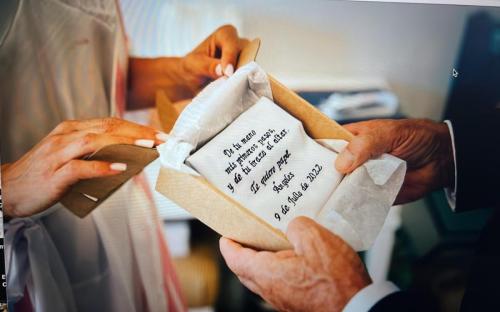 De tu mano
mis primeros pasos,
y de tu brazo al altar.
Te quiero papá
Ángeles
9 de Julio de 2022